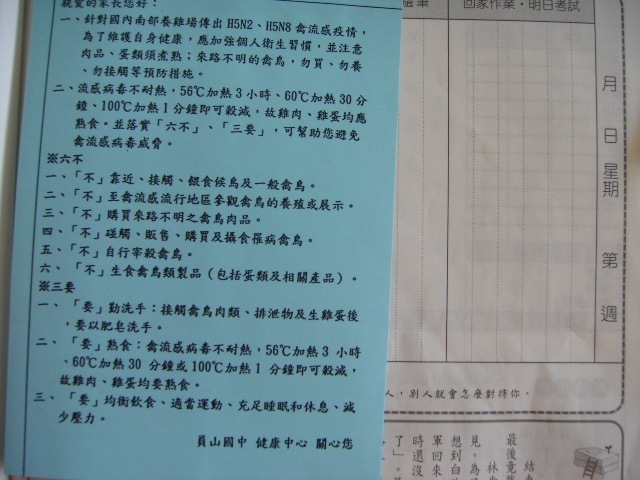 親愛的家長您好：
一、針對國內南部養雞場傳出 H5N2、H5N8 禽流感疫情，
為了維護自身健康，應加強個人衛生習慣，並注意
肉品、蛋類須煮熟；來路不明的禽鳥，勿買、勿養
、勿接觸等預防措施。
二、流感病毒不耐熱，56℃加熱 3 小時、60℃加熱 30 分
鐘、100℃加熱 1 分鐘即可殺滅，故雞肉、雞蛋均應
熟食。並落實「六不」、「三要」，可幫助您避免
禽流感病毒威脅。
※六不
一、「不」靠近、接觸、餵食候鳥及一般禽鳥。
二、「不」至禽流感流行地區參觀禽鳥的養殖或展示。
三、「不」購買來路不明之禽鳥肉品。
四、「不」碰觸、販售、購買及攝食罹病禽鳥。
五、「不」自行宰殺禽鳥。
六、「不」生食禽鳥類製品（包括蛋類及相關產品）。
※三要
一、「要」勤洗手：接觸禽鳥肉類、排泄物及生雞蛋後
，要以肥皂洗手。
二、「要」熟食：禽流感病毒不耐熱，56℃加熱 3 小時
、60℃加熱 30 分鐘或 100℃加熱 1 分鐘即可殺滅，
故雞肉、雞蛋均要熟食。
三、「要」均衡飲食、適當運動、充足睡眠和休息、減
少壓力。
員山國中 健康中心 關心您
隨筆
回家作業・明日考試
月
日
星期
第
週
人，別人就會怎麼對待你。
結
最後竟然
林
見。為
想到白
軍回來
時還沒
了」。